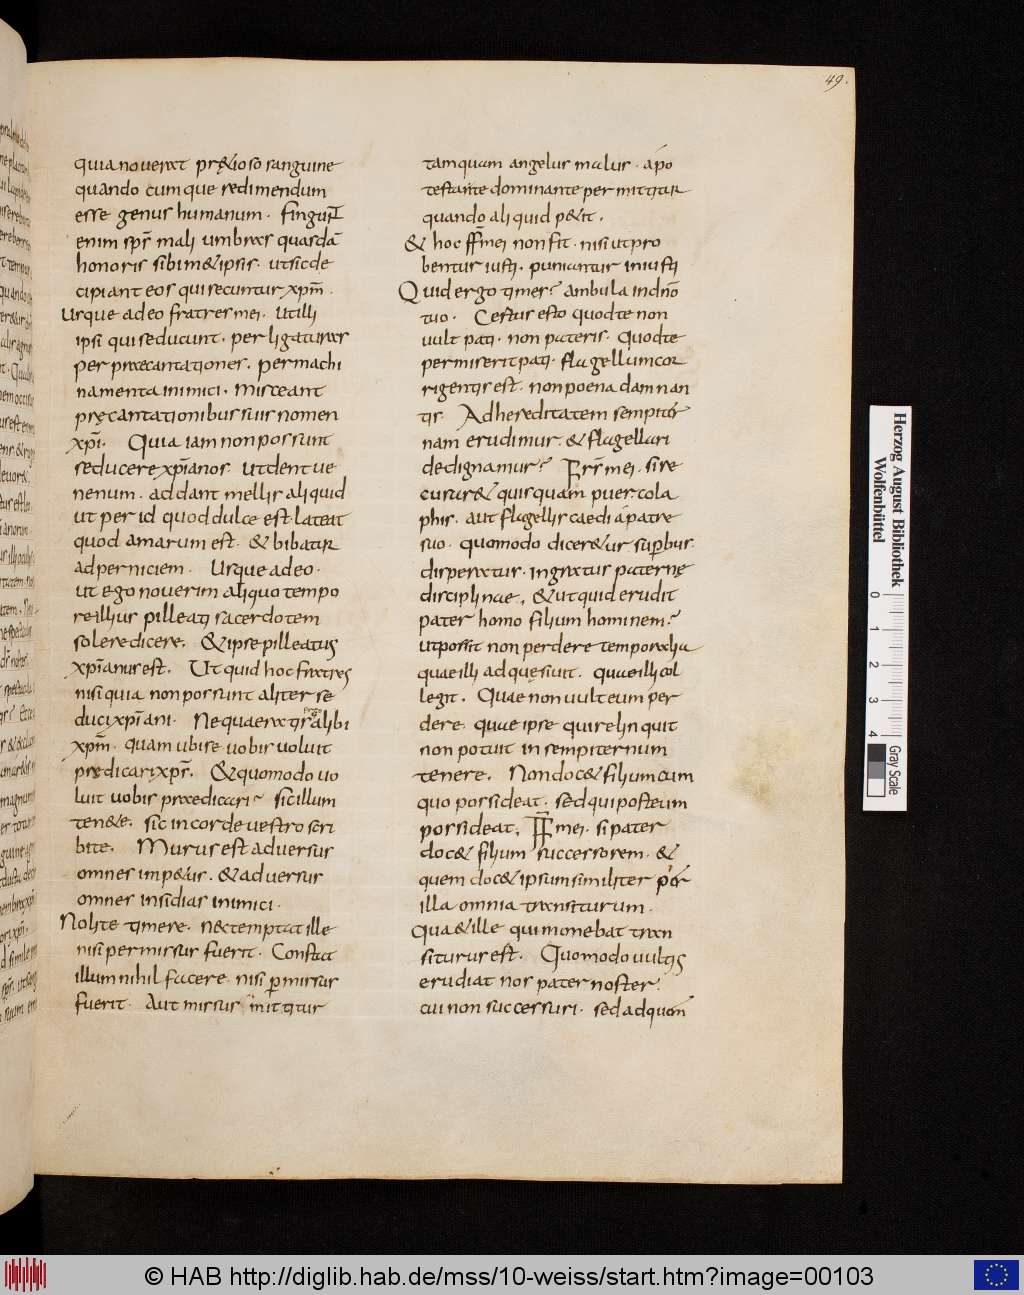 49.
quia nouerat pręcioso sanguine
quando cumque redimendum
esse genus humanum. finguNT
enim sps̄ mali umbras quasdā
honoris sibim& ipsis. ut sic de
cipiant eos qui secuntur xpm̄.
Usque adeo fratres mei. ut illi
ipsi qui seducunt. per ligaturas
per praecantationes. per machi
namenta inimici. misceant
pręcantationibus suis nomen
xpī. Quia iam non possunt
seducere xpīanos ut dent ue
nenum. addant mellis aliquid
ut per id quod dulce est lateat
quod amarum est. & bibatur
ad perniciem. Usque adeo.
ut ego nouerim aliquo tempo
re illius pilleati sacerdotem
solere dicere. & ipse pilleatus
xpīanus est. Ut quid hoc fratres
nisi quia non possunt aliter se
duci xpīani. Ne quaeratis alibi
xpm̄. quam ubi se uobis uoluit
prędicari xps̄. & quomodo uo
luit uobis praedicari sic illum
ten&e. sic in corde uestro scri
bite. Murus est aduersus
omnes imp&us. & aduersus
omnes insidias inimici.
Nolite timere. n& temptat ille
nisi permissus fuerit. Constat
illum nihil facere. nisi pmissus
fuerit. Aut missus mittitur
tamquam angelus malus. a pō
testate dominante permittitur
quando aliquid p&it.
& hoc ff̄ mei non fit. nisi ut pro
bentur iusti. puniantur iniusti
Quid ergo times? ambula in dnō
tuo. Certus esto quod te non
uult pati. non pateris. Quod te
permiserit pati. flagellum cor
rigentis est. non poena damnan
tis Ad hereditatem sempiter
nam erudimur. & flagellari
dedignamur? Frs̄ mei. si re
cusar& quisquam puer cola
phis. aut flagellis caedi a patre
suo. quomodo dicer&ur supbus.
disperatus. ingratus paternę
disciplinae. & ut quid erudit
pater homo filium hominem?
ut possit non perdere temporalia
quae illi adquęsiuit. quae illi col
legit. Quae non uult eum per
dere. quae ipse qui relinquit
non potuit in sempiternum
tenere. Non doc& filium cum
quo possideat. sed qui post eum
possideat. FF̄ mei. si pater
doc& filium successorem. &
quem doc& ipsum similiter per
illa omnia transiturum.
Qua & ille qui monebat tran
siturus est. Quomodo uultis
erudiat nos pater noster.
cui non successuri. sed ad quem
Herzog August Bibliothek
Wolfenbüttel
0 1 2 3 4
Gray Scale
© HAB http://diglib.hab.de/mss/10-weiss/start.htm?image=00103